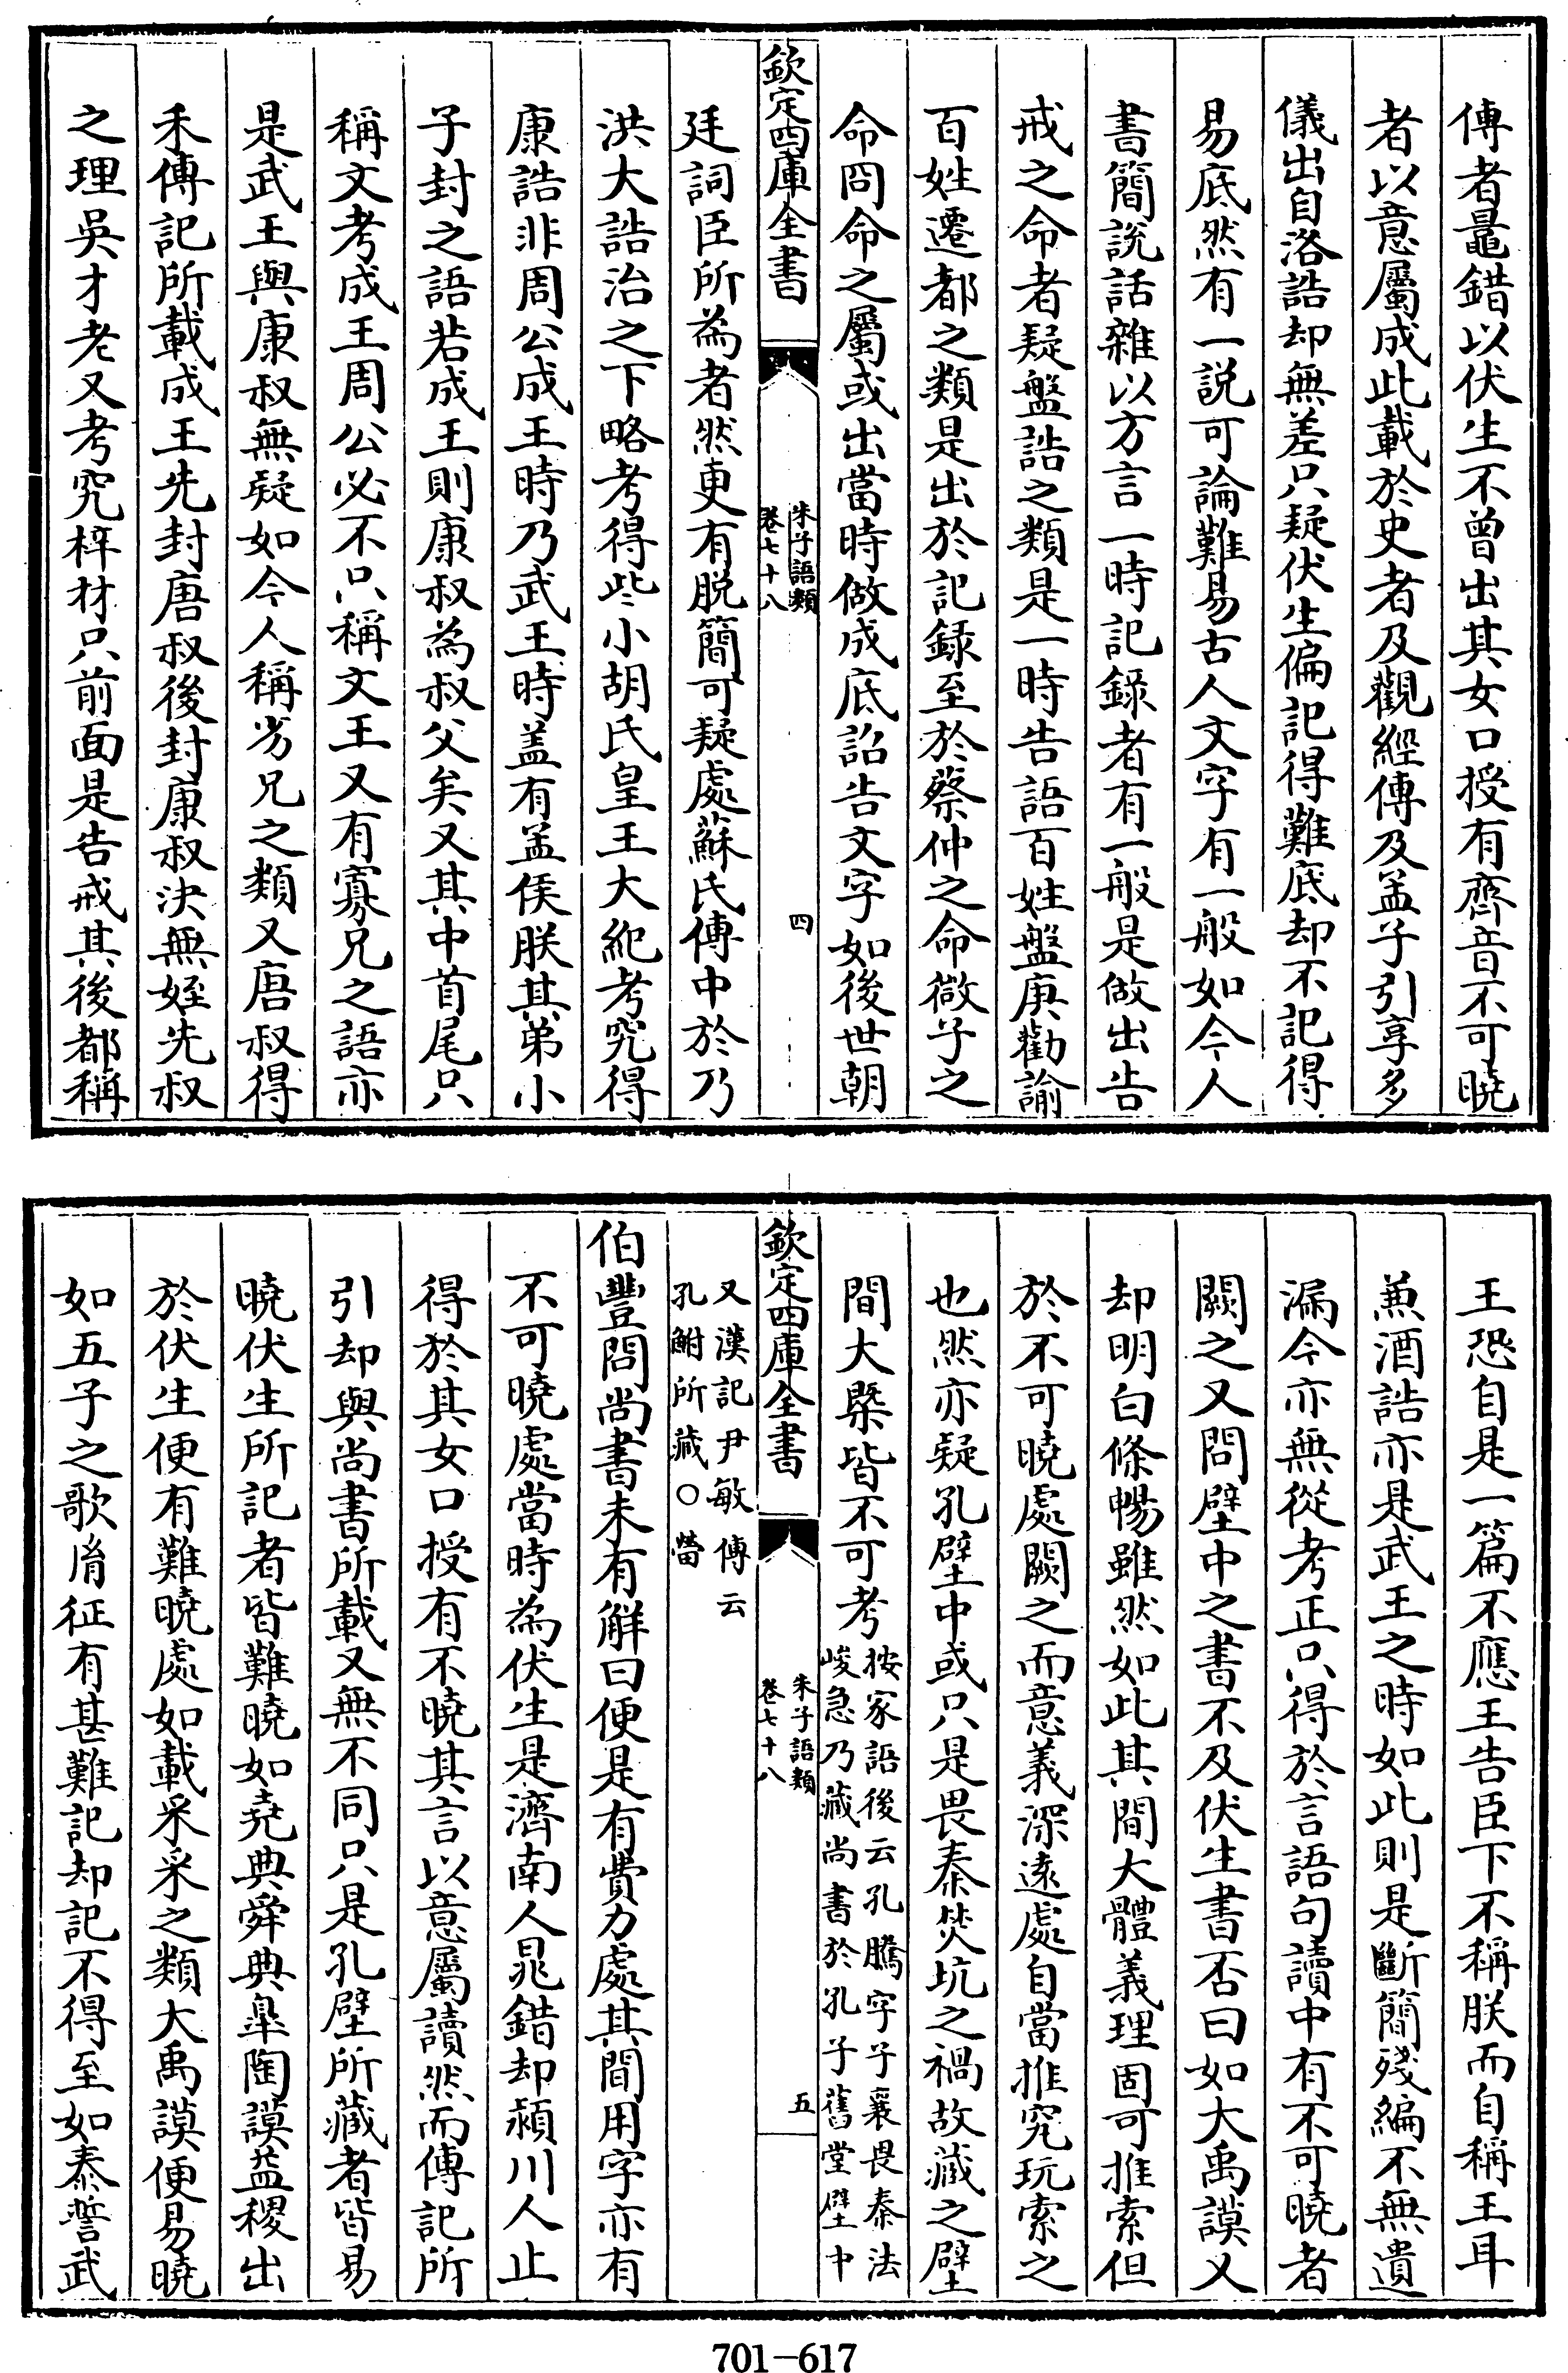 傳者鼂錯以伏生不曾出其女口授有齊音不可曉
者以意屬成此載於史者及觀經傳及孟子引享多
儀出自洛誥却無差只疑伏生偏記得難底却不記得
易底然有一説可論難易古人文字有一般如今人
書簡説話雜以方言一時記録者有一般是做出告
戒之命者疑盤誥之類是一時告語百姓盤庚勸諭
百姓遷都之類是出於記録至於蔡仲之命微子之
命冏命之屬或出當時做成底詔告文字如後世朝
欽定四庫全書
朱子語類
卷七十八
四
廷詞臣所為者然更有脱簡可疑處蘇氏傳中於乃
洪大誥治之下略考得些小胡氏皇王大紀考究得
康誥非周公成王時乃武王時盖有孟侯朕其弟小
子封之語若成王則康叔為叔父矣又其中首尾只
稱文考成王周公必不只稱文王又有寡兄之語亦
是武王與康叔無疑如今人稱劣兄之類又唐叔得
禾傳記所載成王先封唐叔後封康叔決無姪先叔
之理吳才老又考究梓材只前面是告戒其後都稱
王恐自是一篇不應王告臣下不稱朕而自稱王耳
兼酒誥亦是武王之時如此則是斷簡殘編不無遺
漏今亦無從考正只得於言語句讀中有不可曉者
闕之又問壁中之書不及伏生書否曰如大禹謨又
却明白條暢雖然如此其間大體義理固可推索但
於不可曉處闕之而意義深遠處自當推究玩索之
也然亦疑孔壁中或只是畏秦焚坑之禍故藏之壁
間大槩皆不可考按家語後云孔騰字子襄畏秦法
峻急乃藏尚書於孔子舊堂壁中
欽定四庫全書
朱子語類
卷七十八
五
又漢記尹敏傳云
孔鮒所藏○㽦
伯豐問尚書未有解曰便是有費力處其間用字亦有
不可曉處當時為伏生是濟南人晁錯却潁川人止
得於其女口授有不曉其言以意屬讀然而傳記所
引却與尚書所載又無不同只是孔壁所藏者皆易
曉伏生所記者皆難曉如堯典舜典臯陶謨益稷出
於伏生便有難曉處如載采采之類大禹謨便易曉
如五子之歌胤征有甚難記却記不得至如泰誓武
701-617